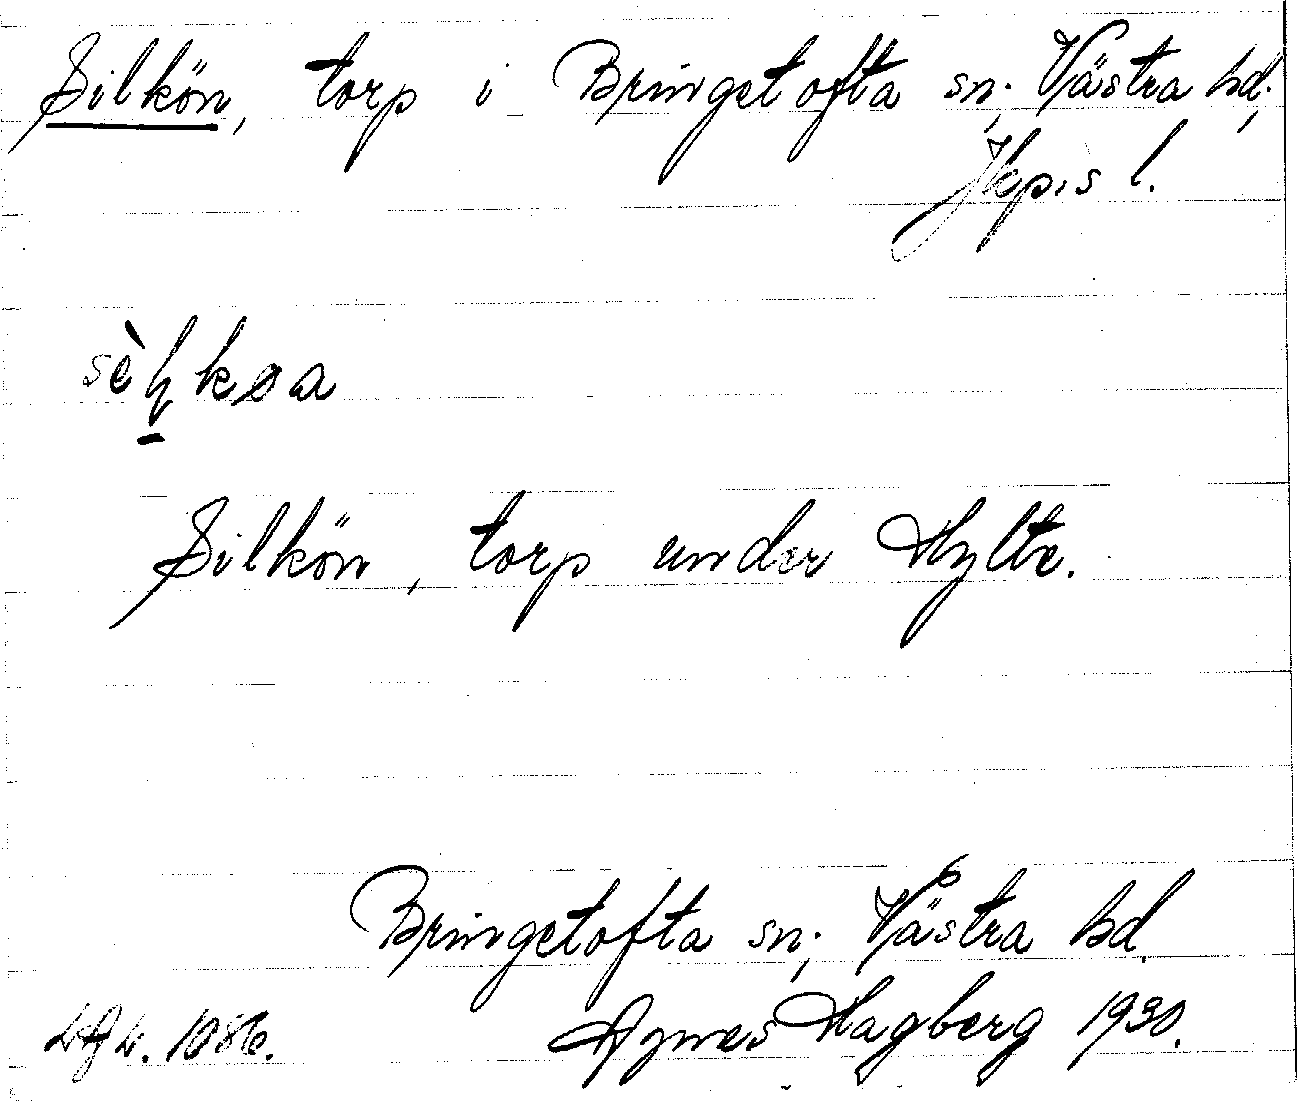 Silkön, torp i Bringetofta sn; Västra hd;
Jkp:s l.
Silkön, torp under Hylte.
Bringetofta sn; Västra hd.
Agnes Hagberg 1930.